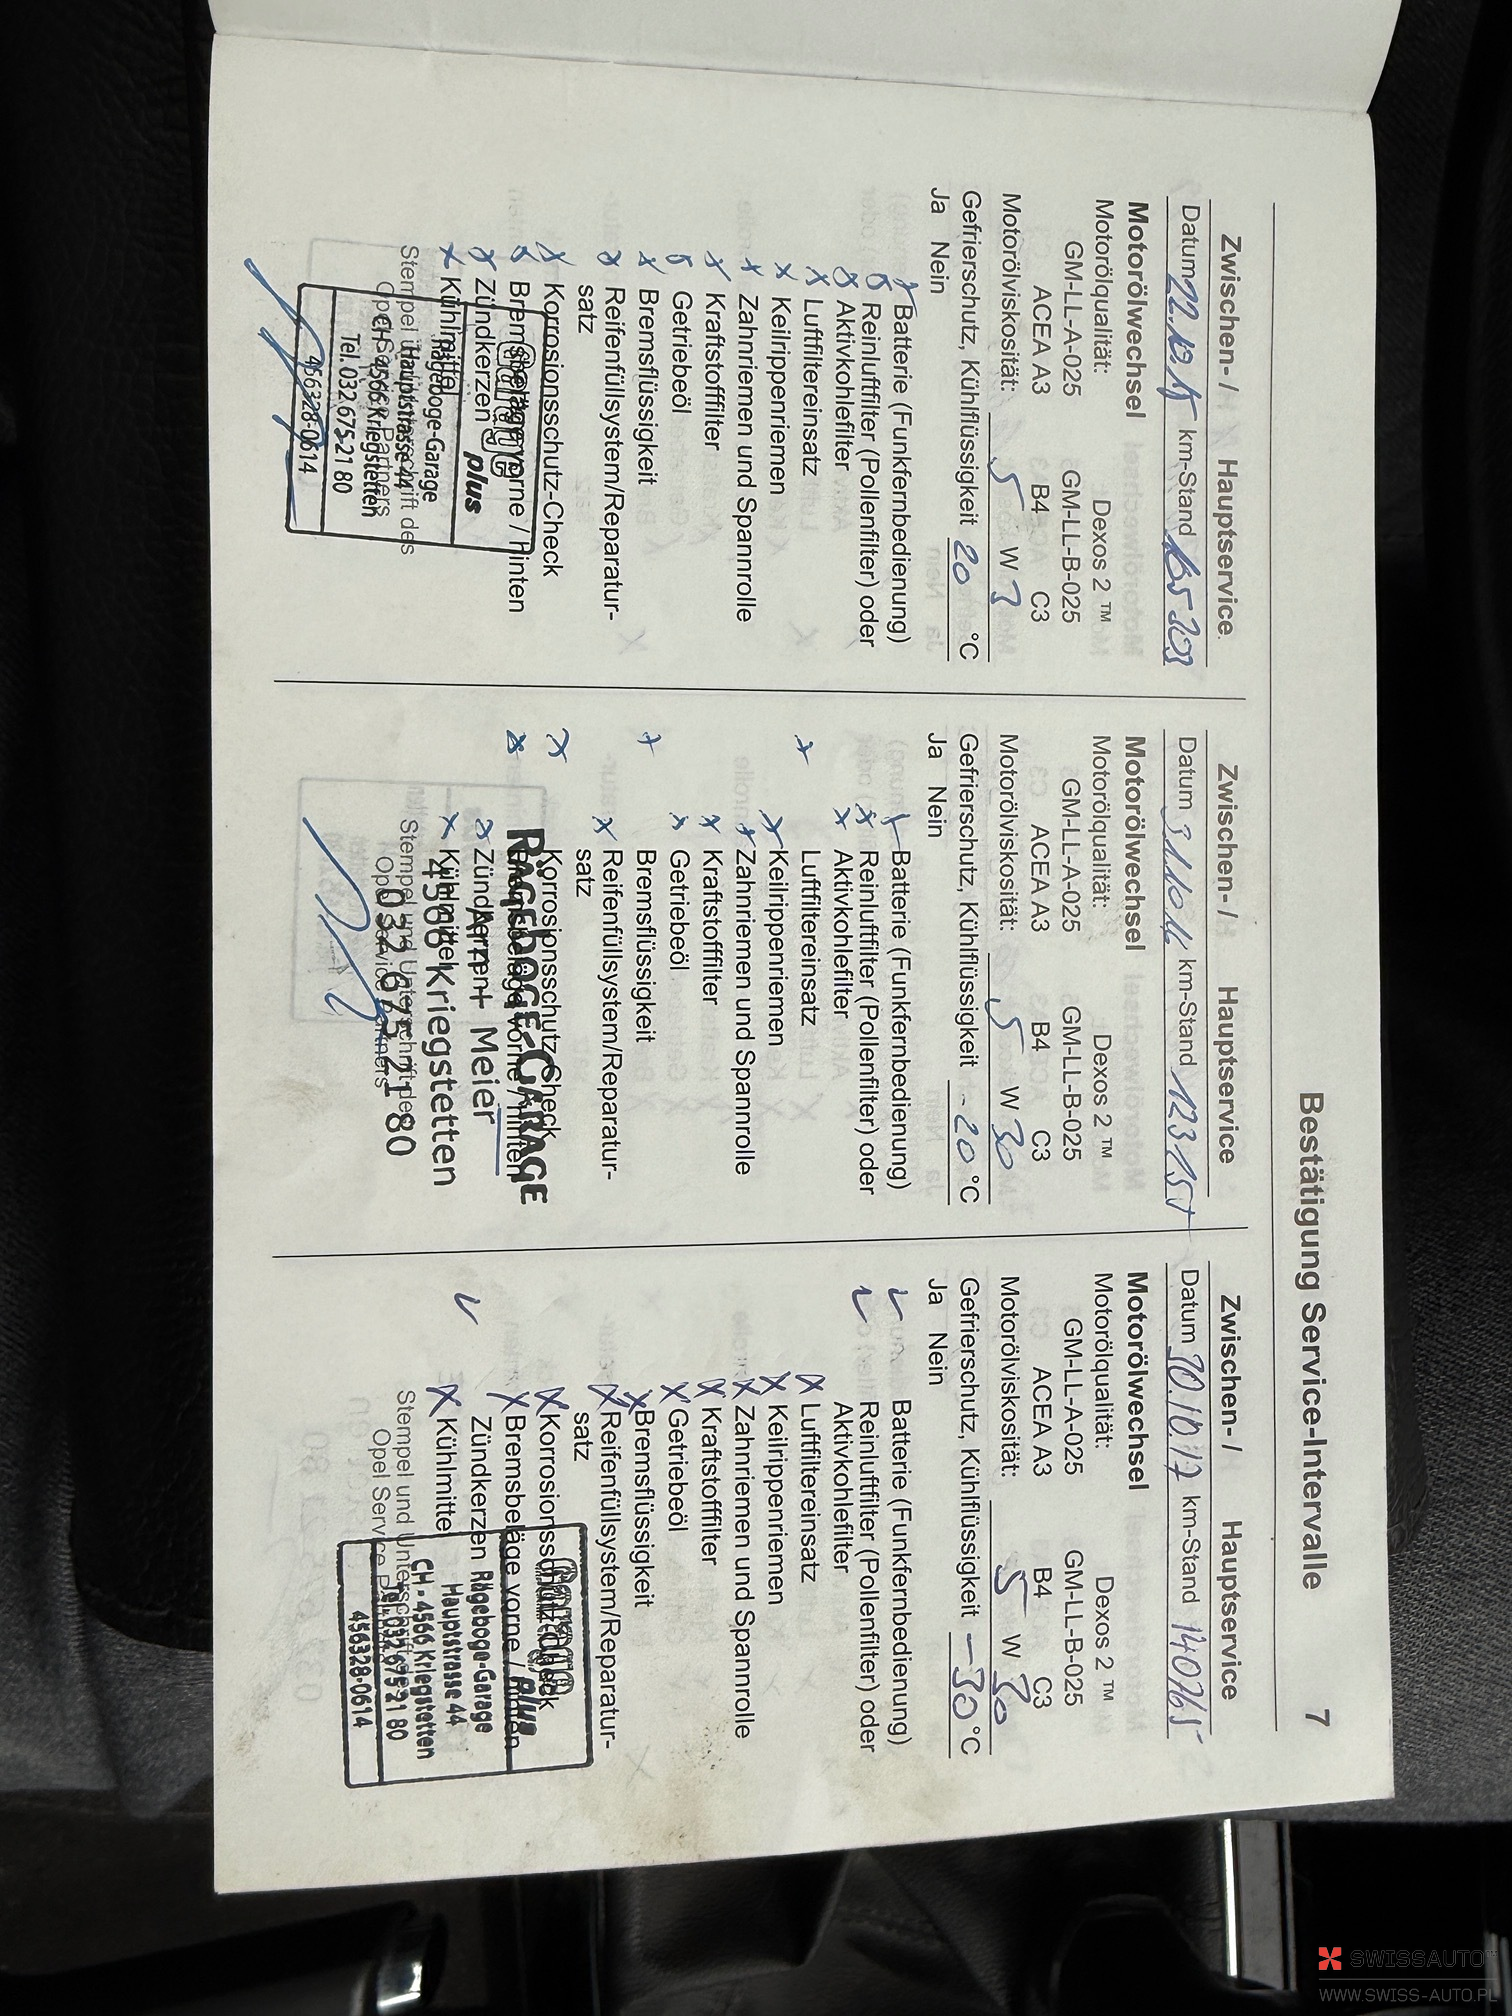 Bestätigung Service-Intervalle 7
Zwischen- / Hauptservice
Datum 22.10.15 km-Stand
Motorölwechsel
Motorölqualität: Dexos 2 ™
GM-LL-A-025 GM-LL-B-025
ACEA A3 B4 C3
Motorölviskosität: 5 W
Gefrierschutz, Kühlflüssigkeit 20 °C
Ja Nein
Batterie (Funkfernbedienung)
Reinluftfilter (Pollenfilter) oder
Aktivkohlefilter
Luftfiltereinsatz
Keilrippenriemen
Zahnriemen und Spannrolle
Kraftstofffilter
Getriebeöl
Bremsflüssigkeit
Reifenfüllsystem/Reparatur-
satz
Korrosionsschutz-Check
Bremsbeläge vorne / hinten
Zündkerzen
Kühlmittel
Stempel und Unterschrift des
Opel Service Partners
Garage
plus
Rageboge-Garage
Hauptstrasse 44
CH - 4566 Kriegstetten
Tel. 032 675 21 80
456328-0614
Zwischen- / Hauptservice
Datum 31.10.16 km-Stand
Motorölwechsel
Motorölqualität: Dexos 2 ™
GM-LL-A-025 GM-LL-B-025
ACEA A3 B4 C3
Motorölviskosität: 5 W 30
Gefrierschutz, Kühlflüssigkeit -20 °C
Ja Nein
Batterie (Funkfernbedienung)
Reinluftfilter (Pollenfilter) oder
Aktivkohlefilter
Luftfiltereinsatz
Keilrippenriemen
Zahnriemen und Spannrolle
Kraftstofffilter
Getriebeöl
Bremsflüssigkeit
Reifenfüllsystem/Reparatur-
satz
Korrosionsschutz-Check
Bremsbeläge vorne / hinten
Zündkerzen
Kühlmittel
Stempel und Unterschrift des
Opel Service Partners
RAGEBOGE-GARAGE
Meier
4566 Kriegstetten
032 675 21 80
Zwischen- / Hauptservice
Datum 30.10.17 km-Stand 140765
Motorölwechsel
Motorölqualität: Dexos 2 ™
GM-LL-A-025 GM-LL-B-025
ACEA A3 B4 C3
Motorölviskosität: 5 W 30
Gefrierschutz, Kühlflüssigkeit -30 °C
Ja Nein
Batterie (Funkfernbedienung)
Reinluftfilter (Pollenfilter) oder
Aktivkohlefilter
Luftfiltereinsatz
Keilrippenriemen
Zahnriemen und Spannrolle
Kraftstofffilter
Getriebeöl
Bremsflüssigkeit
Reifenfüllsystem/Reparatur-
satz
Korrosionsschutz-Check
Bremsbeläge vorne / hinten
Zündkerzen
Kühlmittel
Stempel und Unterschrift des
Opel Service Partners
Garage
plus
Rageboge-Garage
Hauptstrasse 44
CH - 4566 Kriegstetten
Tel. 032 675 21 80
456328-0614
SWISSAUTO
WWW.SWISS-AUTO.PL